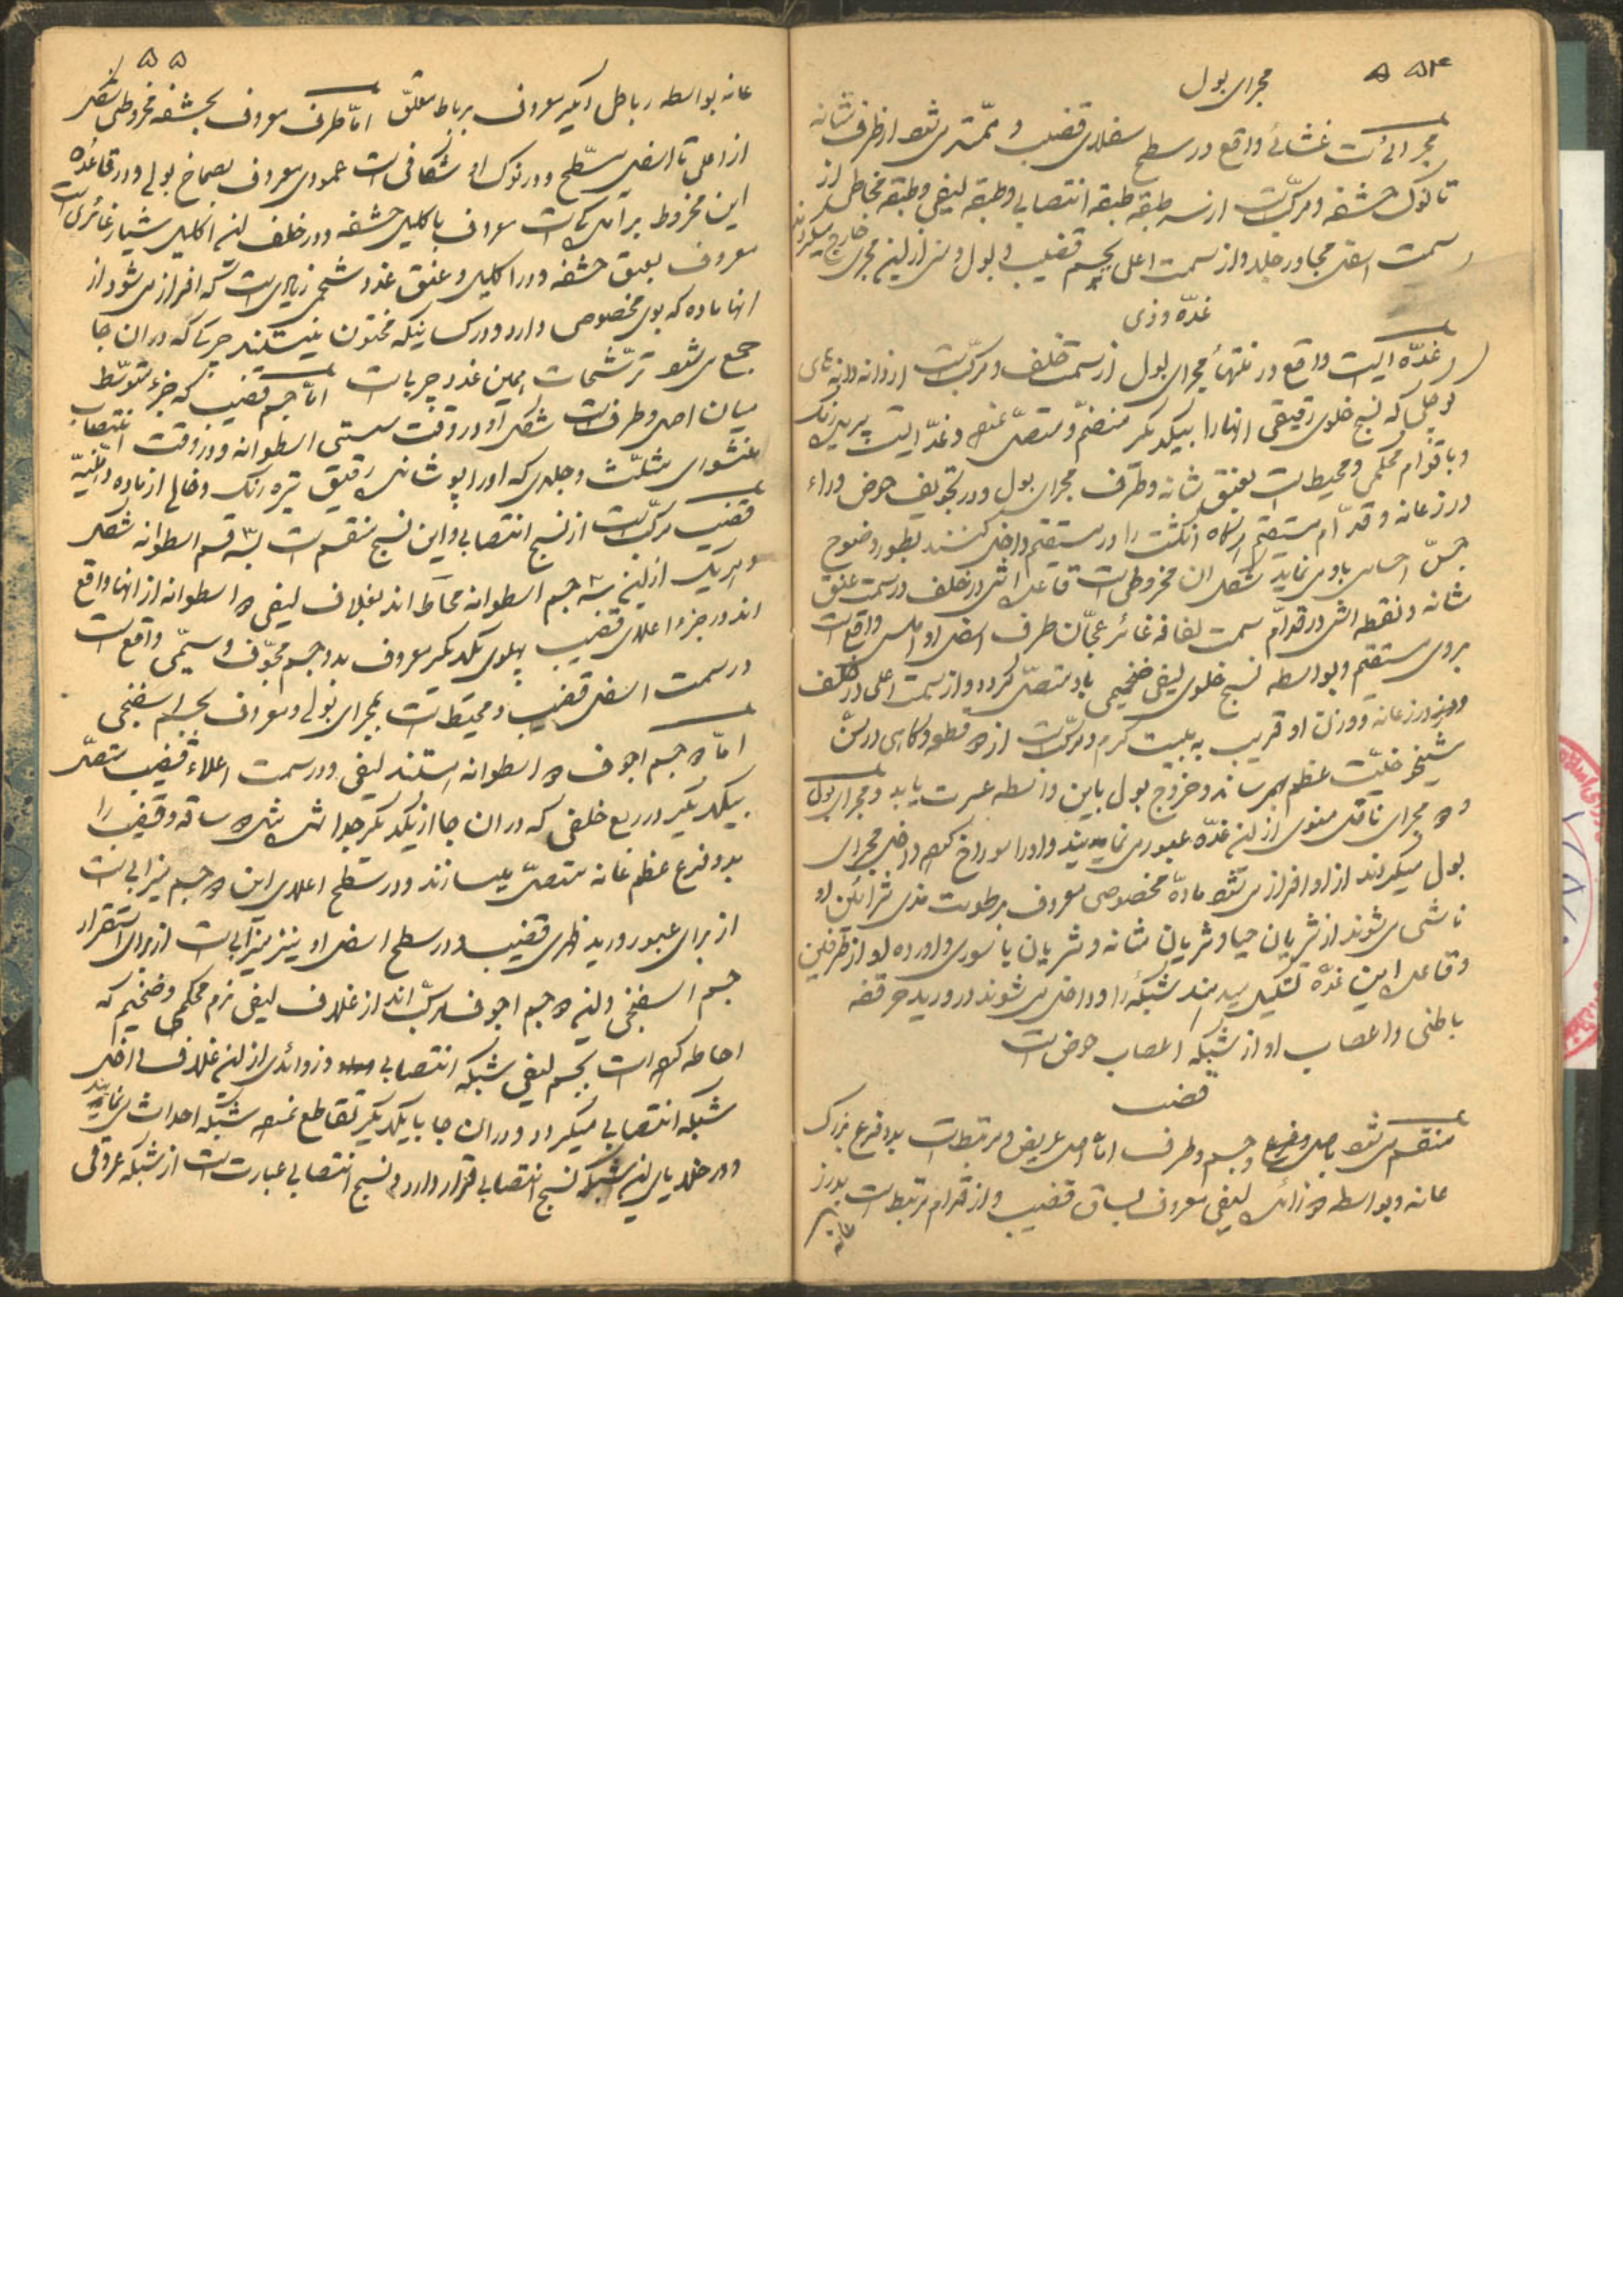 ۵۴
مجرای بول
مجرائیست غشائی واقع در سطح سفلای قضیب و ممتد میشود از طرف مثانه
تا نوک حشفه و مرکبست از سه طبقه طبقه انتصابی و طبقه لیفی و طبقه مخاطی از
سمت اسفل مجاور جلد و از سمت اعلی بجسم قضیب و بول و منی از این مجری خارج میگردند
غدّه وذی
غدّه ایست واقع در منتهاء مجرای بول از سمت خلف و مرکّبست از دانه دانه های
کوچکی که نسیج خلوی رقیقی انها را بیکدیگر منضمّ و متصلّ نموده و غدّه ایست پریده رنگ
و باقوام محکمی و محیط است بعنق مثانه و طرف مجرای بول و در تجویف حوض وراء
درز عانه و قدّام مستقیم هرگاه انگشت را در مستقیم داخل کنند بطور وضوح
حسّ احساس باو می نماید شکل ان مخروطی است قاعده اش در خلف در سمت عنق
مثانه و نقطه اش در قدّام سمت لفافه غائر عجّان طرف اسفل او املس واقع است
بروی مستقیم و بواسطه نسیج خلوی لیفی ضخیمی باو متصلّ گردد و از سمت اعلی در خلف
درز عانه و وزن او قریب به بیست گرم و مرکّبست از ۲ قطعه و گاهی در سنّ
شیخوخیّت عظم بهم رساند و خروج بول باین واسطه عسرت یابد و مجرای بول
و ۲ مجرای ناقل منوی از این غدّه عبور می نمایند و او را سوراخ کرده داخل مجرای
بول میگردند از او افراز میشود مادّه مخصوصی معروف برطوبت مذی شرائین او
ناشی می شوند از شریان حیا و شریان مثانه و شریان باسوری و اورده او از طرفین
و قاعده این غدّه تشکیل میدهند شبکهٔ را و داخل می شوند در ورید حرقفه
باطنی و اعصاب او از شبکه اعصاب حوض است
قضیب
منقسم میشود باصل و جسم و طرف امّا اصل عریض و مرتبط است بدو فرع بزرگ
عانه و بواسطه ۲ زائده لیفی معروف بساق قضیب و از قدّام مرتبط است بدرز
عانه
۵۵
عانه بواسطه رباطی دیگر معروف برباط معلّق امّا طرف معروف بحشفه مخروطی شکل
از اعلی تا اسفل مسطّح و در نوک او شکافی است عمودی معروف بصماخ بولی و در قاعدهٔ
این مخروط برآمدگی است معروف باکلیل حشفه و در خلف این اکلیل شیار غائری است
معروف بعنق حشفه و در اکلیل و عنق غدد شحمی زیادی است که افراز می شود از
انها ماده که بوی مخصوصی دارد و در کسانیکه مختون نیستند چرکی که در ان جا
جمع می شود ترشّحات همین غدد چربی است امّا جسم قضیب که جزء متوسّط
میان اصل و طرف است شکل او در وقت سستی اسطوانه و در وقت انتصاب
منشوری مثلّث و جلدی که او را پوشانیده رقیق تیره رنگ و خالی از ماده دهنیّه
قضیب مرکّبست از نسیج انتصابی و این نسیج منقسم است بسه قسم اسطوانه شکل
و هریک از این سه جسم اسطوانه محاط اند بغلاف لیفی ۲ اسطوانه از انها واقع
اند در جزو اعلای قضیب پهلوی یکدیگر معروف بدو جسم مجوّف و سیّمی واقع است
در سمت اسفل قضیب و محیط است بمجرای بولی و معروف بجسم اسفنجی
امّا ۲ جسم اجوف ۲ اسطوانه هستند لیفی و در سمت اعلاء قضیب متصلّ
بیکدیگر در ربع خلفی که در ان جا از یکدیگر جدا شده ۲ ساقه قضیب را
بدو فرع عظم عانه متصلّ میسازند و در سطح اعلای این ۲ جسم میزابی است
از برای عبور ورید ظهری قضیب و در سطح اسفل او نیز میزابی است از برای استقرار
جسم اسفنجی و این ۲ جسم اجوف مرکّب اند از غلاف لیفی نرم محکمی و ضخیم که
احاطه کرده است بجسم لیفی شبکه انتصابی و زوائدی از این غلاف داخل
شبکه انتصابی میگردد و در ان جا با یکدیگر تقاطع نموده شبکه احداث می نمایند
و در خلایای این شبکه نسیج انتصابی قرار دارد و نسیج انتصابی عبارت است از شبکه عروقی